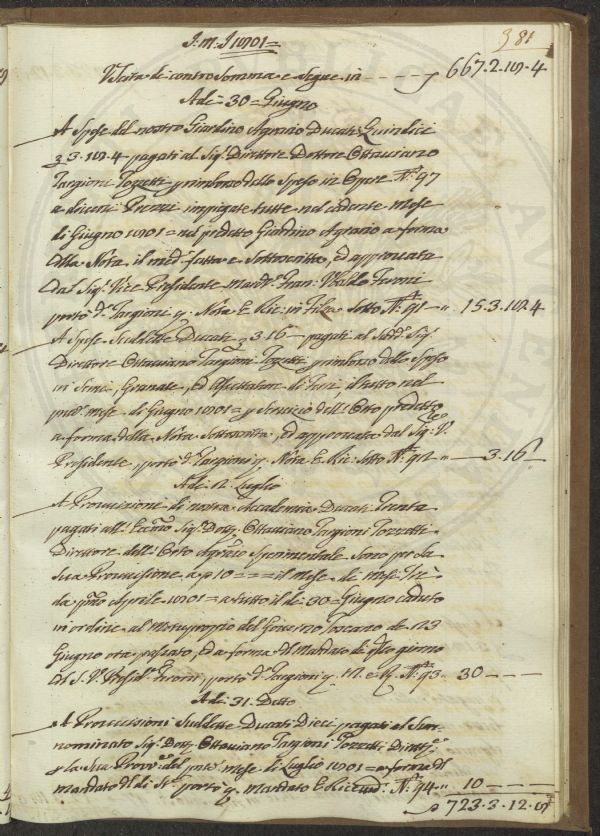 381
J. M. J 1801 =
Uscita di contro Somma e Segue in - - - - 667.2.19.4
A dì 30 = Giugno
A Spese del nostro Giardino Agrario Ducati Quindici
3.19.4 pagati al Sig.r Direttore Dottore Ottaviano
Targioni Tozzetti p rimborso delle Spese in Opere N.o 97
a diversi Prezzi impiegate tutte nel cadente mese
di Giugno 1801 = nel predetto Giardino Agrario a forma
della Nota, il med.o fatta e Sottoscritta, ed approvata
dal Sig.r Vice Presidente March. Fran. Ubaldo Feroni
portò d.o Targioni p. Nota e Ric. in Filza Sotto N.o 91 " 15.3.19.4
A Spese Suddette Ducati 3.16 - pagati al Sudd.o Sig.r
Direttore Ottaviano Targioni Tozzetti p rimborso delle Spese
in Semi, Granate, ed di Ferri il tutto nel
pred.o mese di Giugno 1801 = p Servizio dell'Orto predetto
a forma della Nota Sottoscritta, ed approvata dal Sig.r V.
Presidente, portò d.o Targioni p. Nota e Ric. Sotto N.o 92 " - 3.16
A dì 12 Luglio
A Provvisioni di nostra Accademia Ducati Trenta
pagati all'Eccmo Sig.r Dott. Ottaviano Targioni Tozzetti
Direttore dell'Orto Agrario Sperimentale Sono per la
Sua Provvisione a 10 = = = il mese di mesi Trè
da pmo Aprile 1801 = a tutto il dì 30 = Giugno caduto
in ordine al Motuproprio del Governo Toscano de 23
Giugno ora passato, ed a forma del Mandato di qto giorno
del S. V. Presid.e Feroni, portò d.o Targioni p. M. e R. N.o 93 " 30 - - -
A dì 31. Detto
A Provvisioni Suddette Ducati Dieci pagati al Sun=
nominato Sig.r Dott. Ottaviano Targioni Tozzetti Dirett.re
p la Sua Provv.e del pnte mese di Luglio 1801 = a forma del
Mandato d.o di S.o portò p. Mandato e Ricevuta N.o 94 " 10 - - -
723.3.12.8